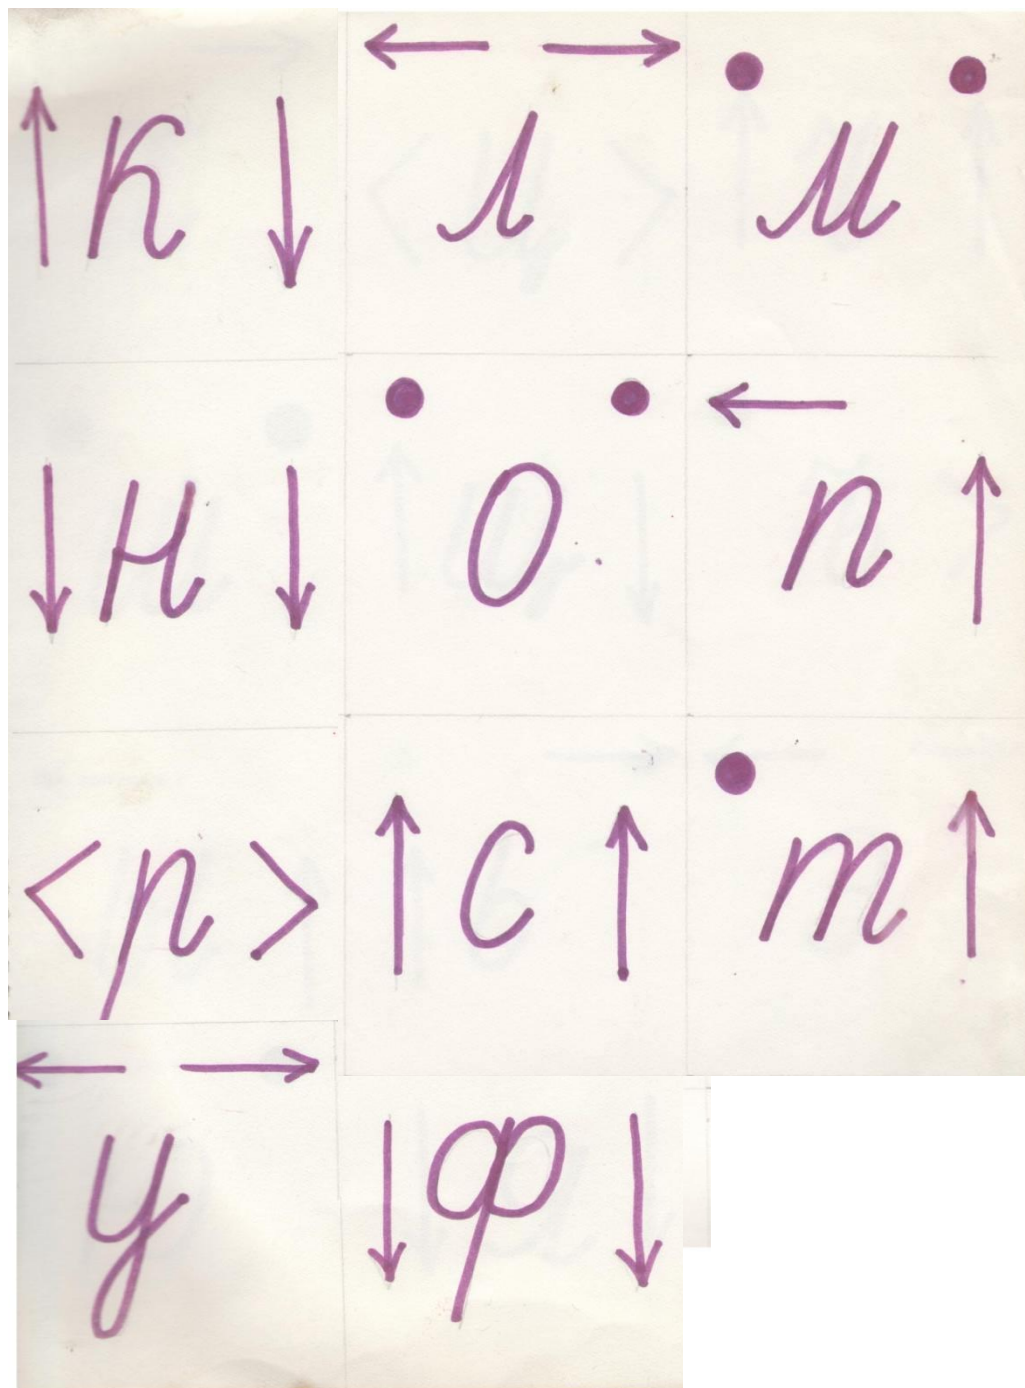 к л м
н о п
р с т
у ф